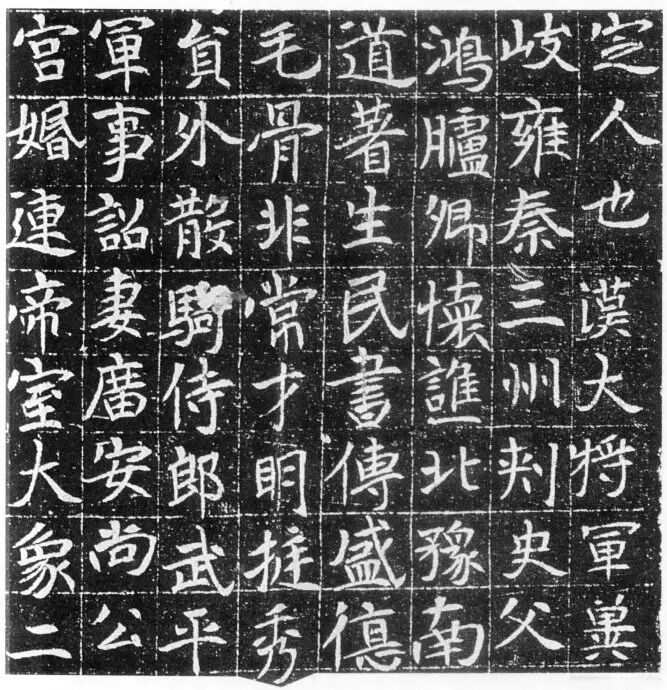 定人也漢大將軍冀
岐雍秦三州刾史父
鴻臚卿懷譙北豫南
道著生民書傳盛德
毛骨非常才眀挺秀
貟外散騎侍郎武平
軍事詔妻廣安尚公
宫婚連帝室大象二